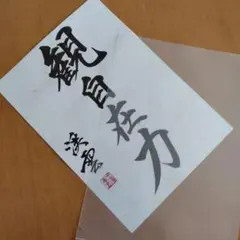 観自在力